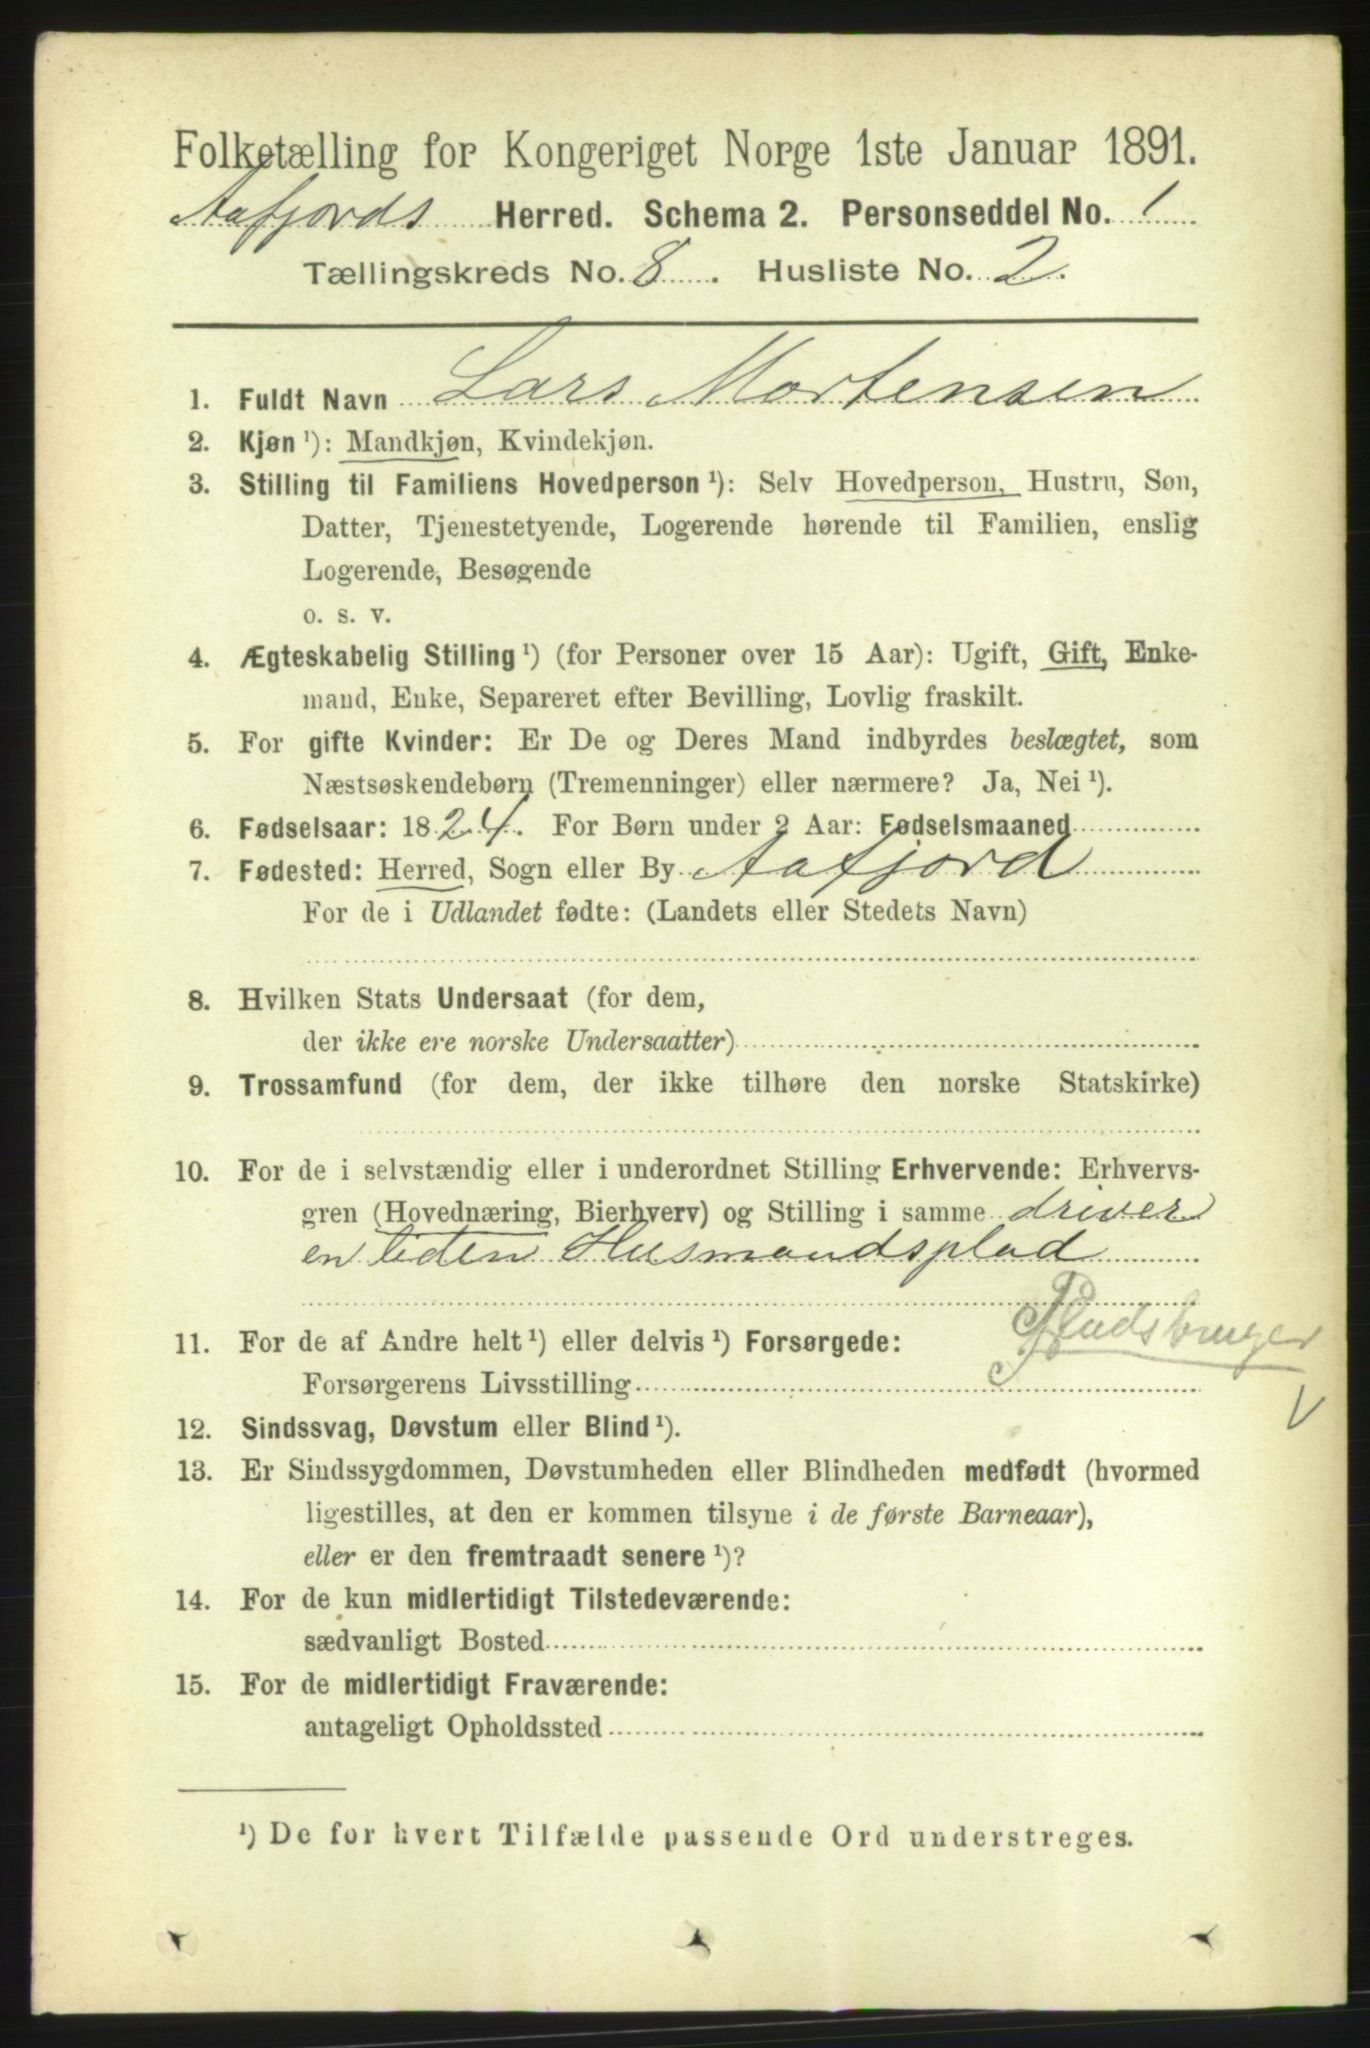 Folketælling for Kongeriget Norge 1ste Januar 1891.
Aafjords Herred. Schema 2. Personseddel No. 1
Tællingskreds No. 8. Husliste No. 2.
1. Fuldt Navn Lars Mortensen
2. Kjøn ¹): Mandkjøn, Kvindekjøn.
3. Stilling til Familiens Hovedperson ¹): Selv Hovedperson, Hustru, Søn,
Datter, Tjenestetyende, Logerende hørende til Familien, enslig
Logerende, Besøgende
o. s. v.
4. Ægteskabelig Stilling ¹) (for Personer over 15 Aar): Ugift, Gift, Enke-
mand, Enke, Separeret efter Bevilling, Lovlig fraskilt.
5. For gifte Kvinder: Er De og Deres Mand indbyrdes beslægtet, som
Næstsøskendebørn (Tremenninger) eller nærmere? Ja, Nei ¹).
6. Fødselsaar: 1824. For Børn under 2 Aar: Fødselsmaaned
7. Fødested: Herred, Sogn eller By Aafjord
For de i Udlandet fødte: (Landets eller Stedets Navn)
8. Hvilken Stats Undersaat (for dem,
der ikke ere norske Undersaatter)
9. Trossamfund (for dem, der ikke tilhøre den norske Statskirke)
10. For de i selvstændig eller i underordnet Stilling Erhvervende: Erhvervs-
gren (Hovednæring, Bierhverv) og Stilling i samme driver
en liden Husmandsplad
Pladsbruger
11. For de af Andre helt ¹) eller delvis ¹) Forsørgede:
Forsørgerens Livsstilling
V
12. Sindssvag, Døvstum eller Blind ¹).
13. Er Sindssygdommen, Døvstumheden eller Blindheden medfødt (hvormed
ligestilles, at den er kommen tilsyne i de første Barneaar),
eller er den fremtraadt senere ¹)?
14. For de kun midlertidigt Tilstedeværende:
sædvanligt Bosted
15. For de midlertidigt Fraværende:
antageligt Opholdssted
¹) De for hvert Tilfælde passende Ord understreges.